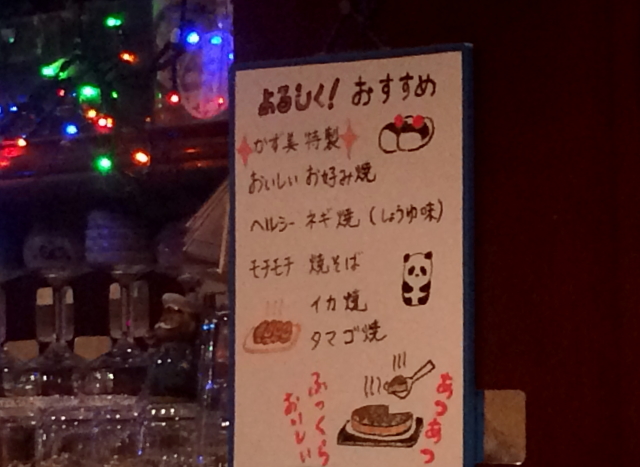 よろしく! おすすめ
かず美 特製
おいしい お好み焼
ヘルシー ネギ焼 (しょうゆ味)
モチモチ 焼そば
イカ焼
タマゴ焼
あつあつ
ふっくら
おいしい